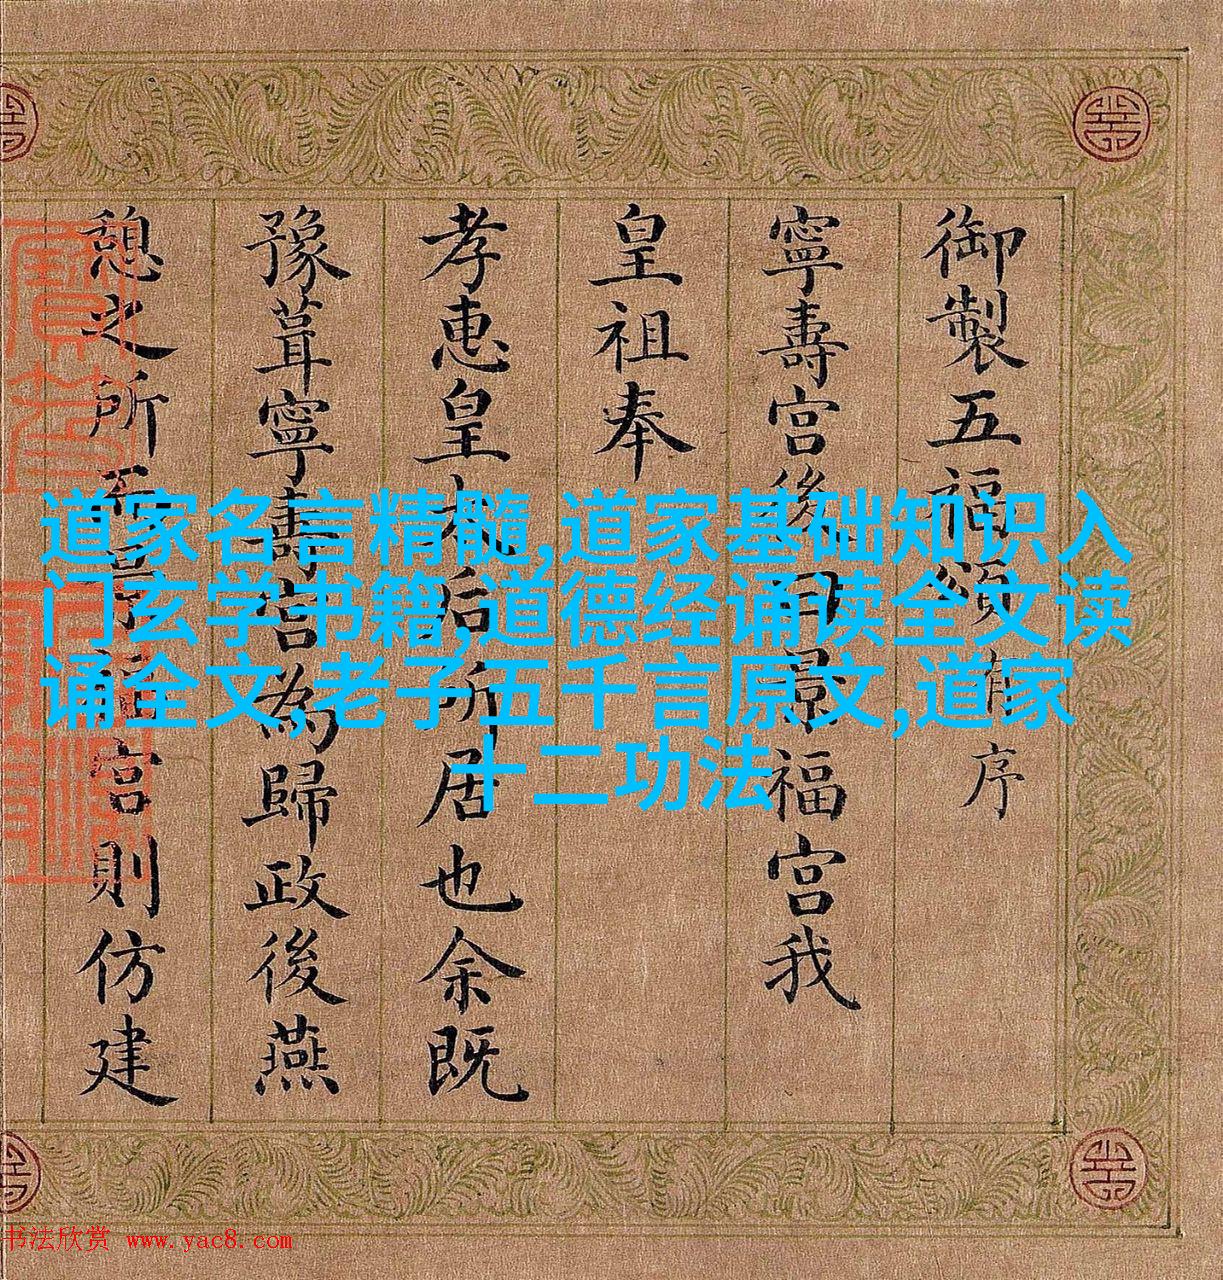 御製五福頌有序
寧壽宮後曰景福宮我
皇祖奉
孝惠皇太后所居也余既
豫葺寧壽宮為歸政後燕
憩之所宮則仿建
道家名言精髓,道家基础知识入
门玄学书籍,道德经诵读全文读
诵全文,老子五千言原文,道家
十二功法
书法欣赏 www.yac8.com